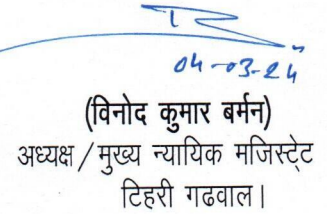 04-03-24
(विनोद कुमार बर्मन)
अध्यक्ष / मुख्य न्यायिक मजिस्ट्रेट
टिहरी गढवाल।